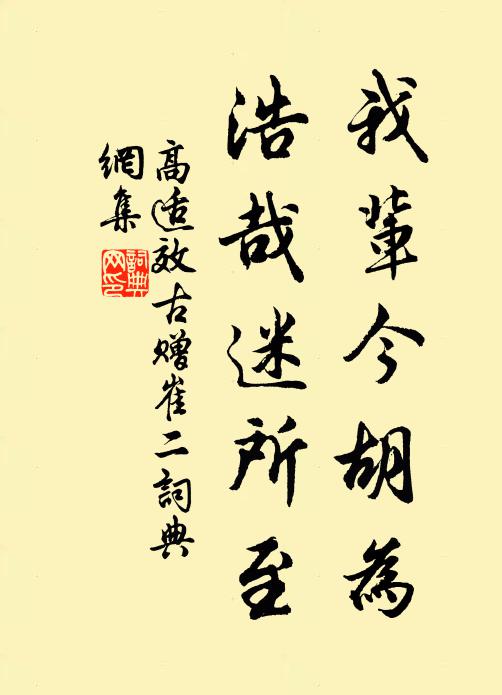 我輩今胡為
浩哉迷所至
高适效古贈崔二詞典
網集
詞典
网印